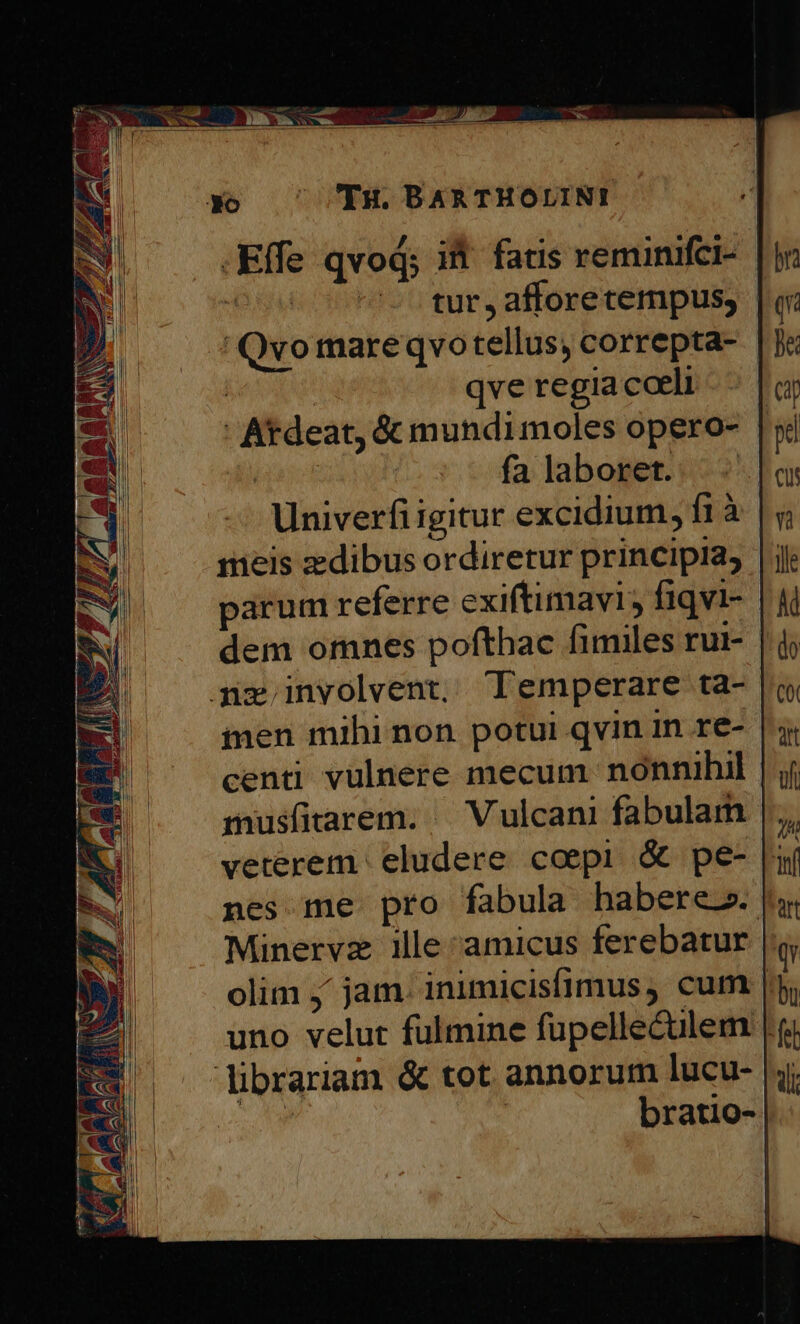 10 TH. BARTHOLINI
Eſſe qvoq; in fatis reminiſci-
tur, afforetempus,
Qvo mare qvo tellus, correpta-
qve regia cœli
Ardeat, & mundi moles opero-
ſa laboret.
Univerſi igitur excidium, ſi à
meis ædibus ordiretur principia,
parum referre exiſtimavi, ſiqvi-
dem omnes poſthac ſimiles rui-
næ involvent. Temperare ta-
men mihi non potui qvin in re-
centi vulnere mecum nonnihil
musſitarem. Vulcani fabulam
veterem eludere cœpi & pe-
nes me pro fabula habere.
Minervæ ille amicus ferebatur
olim, jam inimicisſimus, cum
uno velut fulmine ſupellectilem
librariam & tot annorum lucu-
bratio-